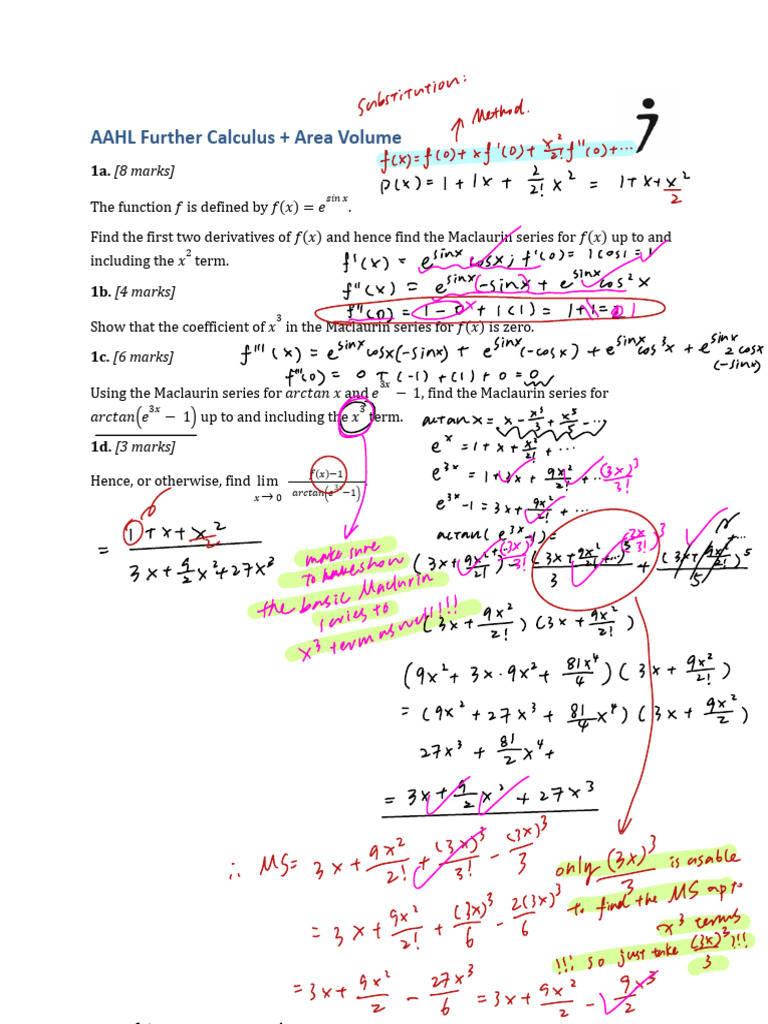 Substitution:
Method.
AAHL Further Calculus + Area Volume
f(x)=f(0)+xf'(0)+x²/2! f''(0)+...
1a. [8 marks]
P(x)=1+1x+2/2! x² = 1+x+x²/2
The function f is defined by f(x) = e^sin x.
Find the first two derivatives of f(x) and hence find the Maclaurin series for f(x) up to and
including the x² term.
f'(x) = e^sinx cosx; f'(0)= 1cos1=1
1b. [4 marks]
f''(x) = e^sinx(-sinx)+ e^sinx cos²x
f''(0) = 1-0 + 1(1) = 1+1=
Show that the coefficient of x³ in the Maclaurin series for f(x) is zero.
1c. [6 marks]
f'''(x) = e^sinx cosx(-sinx) + e^sinx(-cosx)+e^sinx cos³x + e^sinx 2cosx
(-sinx)
f'''(0) = 0 + (-1) +(1) + 0 = 0
Using the Maclaurin series for arctan x and e^3x − 1, find the Maclaurin series for
arctan(e^3x − 1) up to and including the x³ term.
arctan x = x - x³/3 + x⁵/5 - ...
1d. [3 marks]
e^x = 1+x+x²/2! + ...
Hence, or otherwise, find lim x→0 f(x)−1 / arctan(e^3x−1).
e^3x = 1+3x+9x²/2! + ... (3x)³/3!
e^3x-1 = 3x+9x²/2! + ...
arctan(e^3x-1)=
= 1+x+x²/2 / 3x+9/2 x²+27x³
(3x+9x²/2!+(3x)³/3!) - (3x+9x²/2!+... (3x)³/3!)³/3 + (3x+9x²/2!)⁵/5 + ...
make sure
to have show
the basic Maclurin
series to
x³ term as well!!!
(3x+9x²/2!)(3x+9x²/2!)
(9x²+3x·9x²+81x⁴/4)(3x+9x²/2!)
= (9x²+27x³+81/4 x⁴)(3x+9x²/2)
27x³+81/2 x⁴+
= 3x+9/2 x² + 27x³
∴ MS= 3x+9x²/2!+(3x)³/3! - (3x)³/3
only (3x)³/3 is usable
to find the MS up to
x³ terms
!!! so just take (3x)³/3 !!!
= 3x+9x²/2!+(3x)³/6 - 2(3x)³/6
= 3x+9x²/2 - 27x³/6 = 3x+9x²/2 - 9x³/2